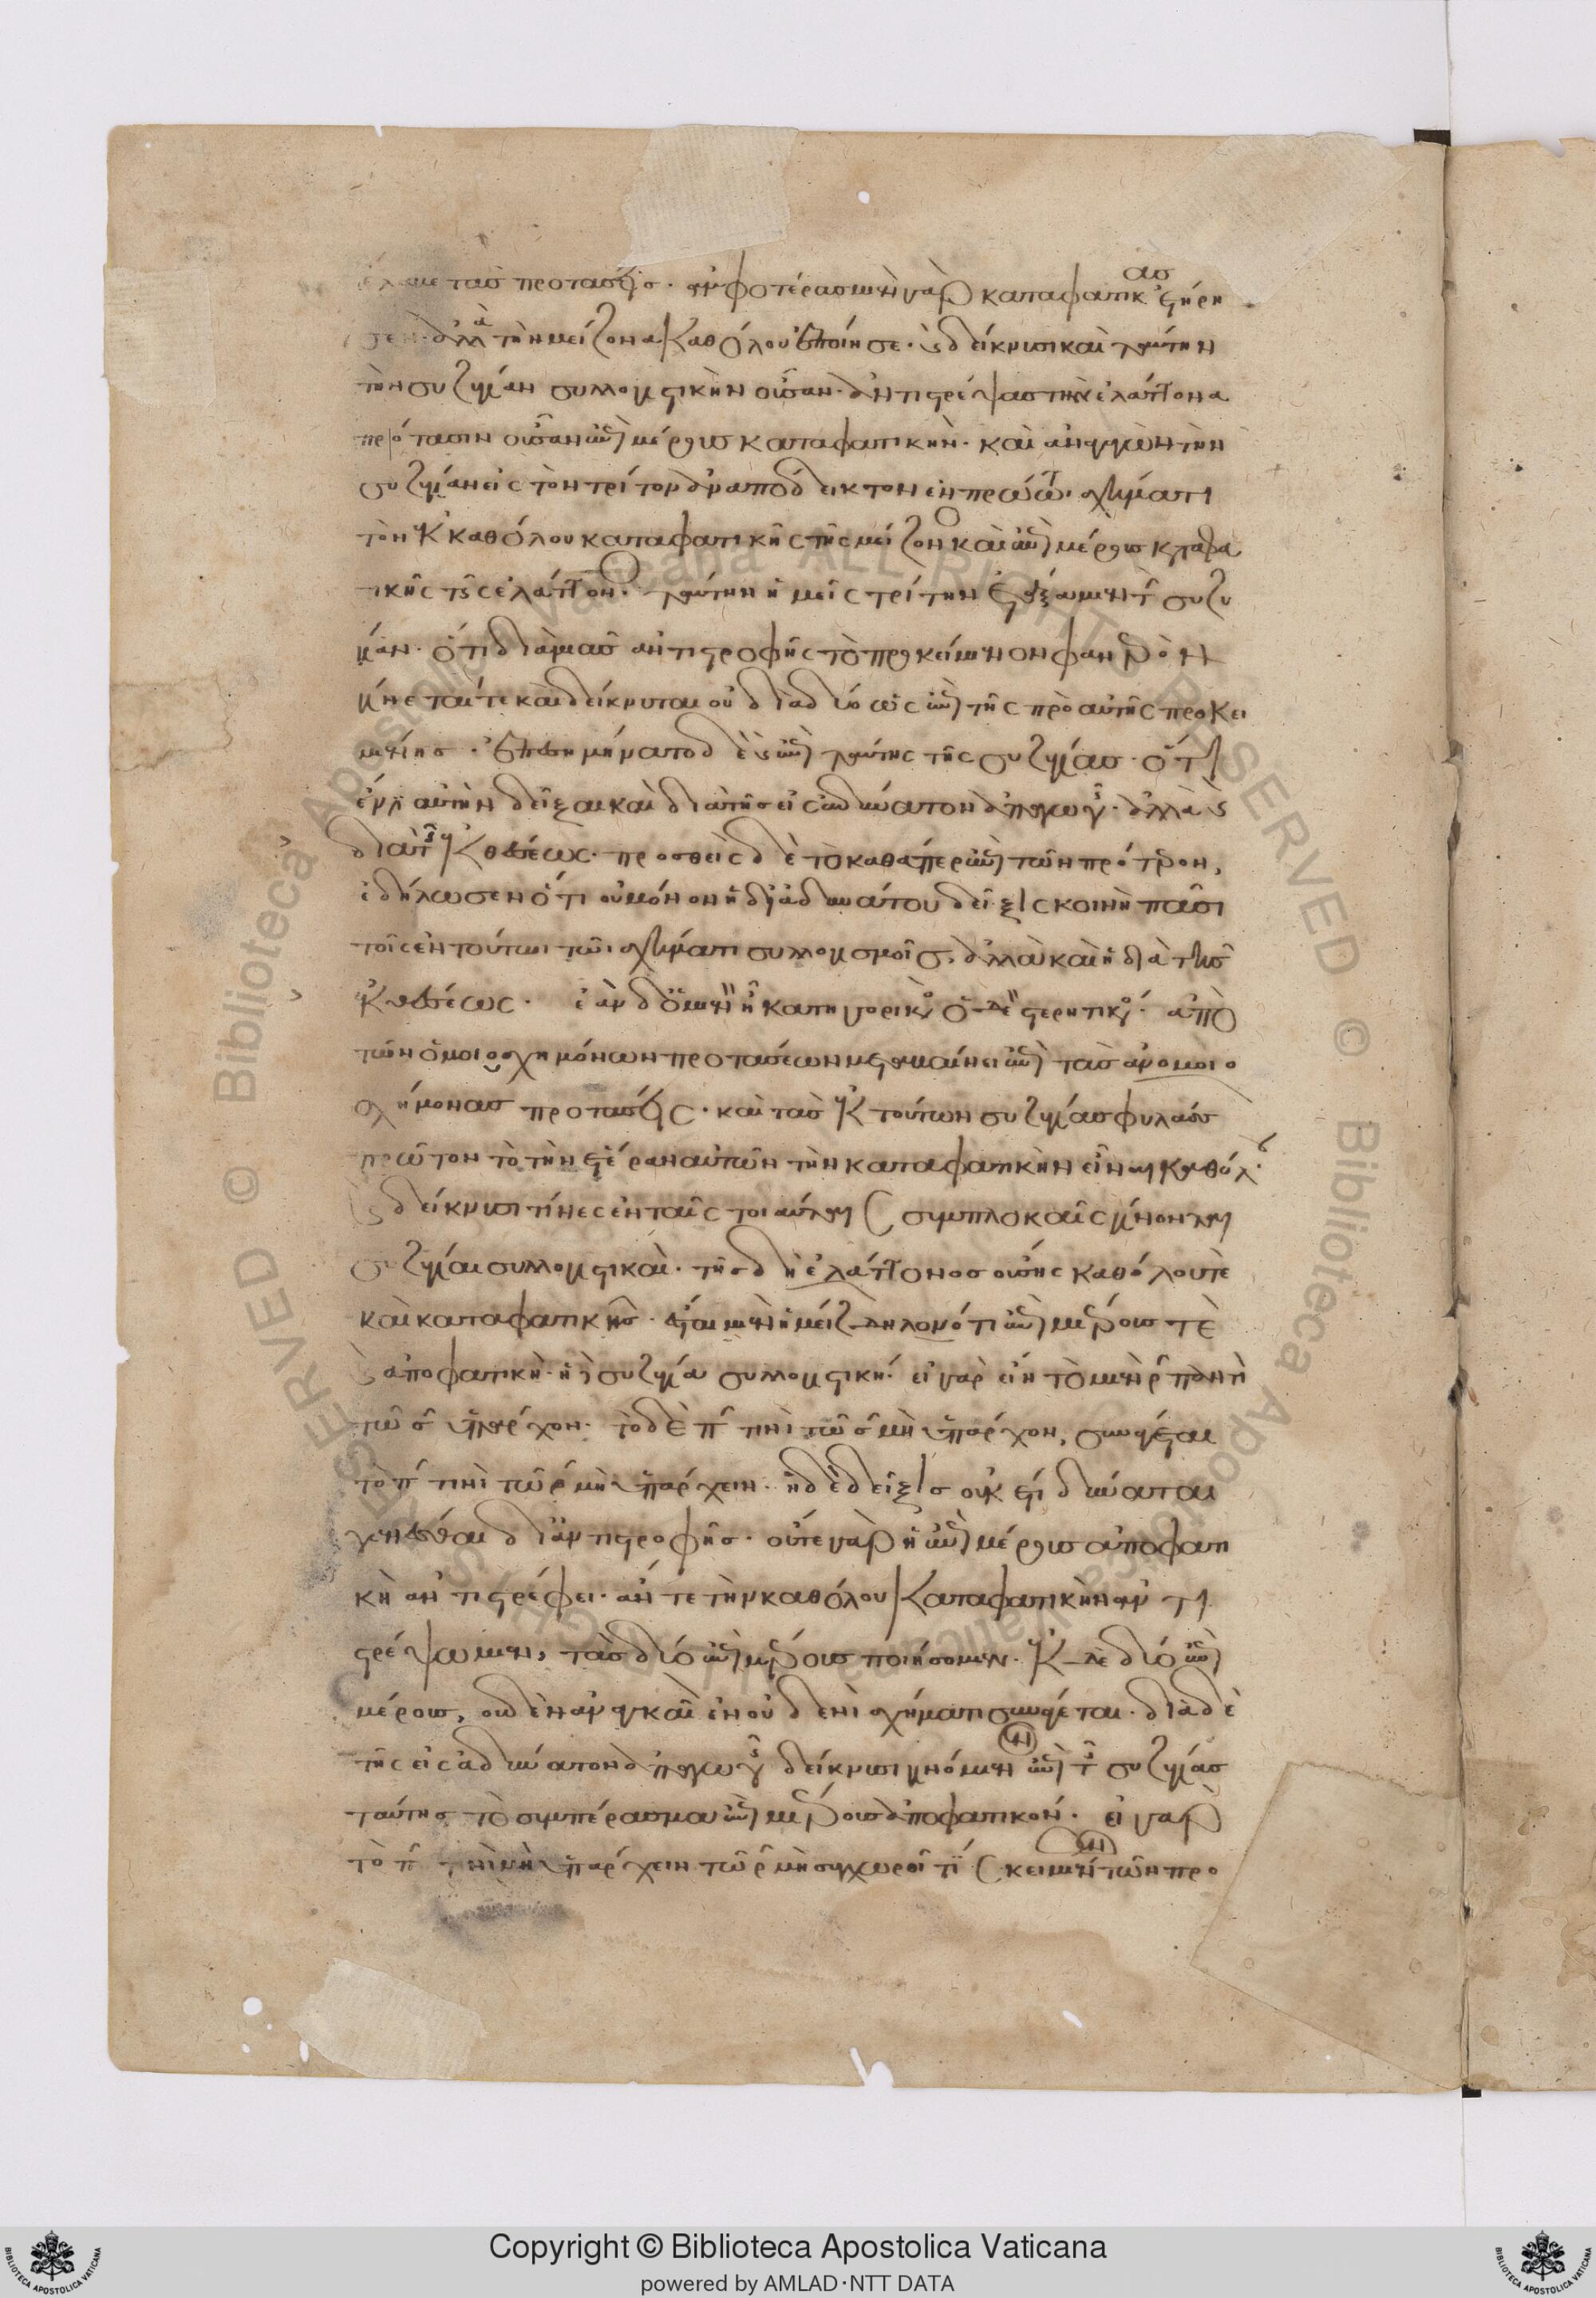 τὰς προτάσεις. ἀμφοτέρας μὲν γὰρ καταφατικὰς ἐτήρη
σεν. ἀλλὰ τὴν μείζονα καθόλου ἐποίησε. καὶ δείκνυσι καὶ ταύτην
τὴν συζυγίαν συλλογιστικὴν οὖσαν. ἀντιστρέψας τὴν ἐλάττονα
πρότασιν οὖσαν ἐπὶ μέρους καταφατικήν. καὶ ἀναγαγὼν τὴν
συζυγίαν εἰς τὸν τρίτον ἀναπόδεικτον ἐν πρώτῳ σχήματι
τὸν ἐκ καθόλου καταφατικῆς τῆς μείζονος καὶ ἐπὶ μέρους καταφα
τικῆς τῆς ἐλάττονος. ταύτην ἡμεῖς τρίτην ἐτάξαμεν τὴν συζυ
γίαν. ὅτι διὰ μιᾶς ἀντιστροφῆς τὸ προκείμενον φανερὸν
γίνεταί τε καὶ δείκνυται οὐ διὰ δύο ὡς ἐπὶ τῆς πρὸ αὐτῆς προκει
μένης. ἐπεσημήνατο δὲ καὶ ἐπὶ ταύτης τῆς συζυγίας. ὅτι
ἔνι αὐτὴν δεῖξαι καὶ διὰ τῆς εἰς ἀδύνατον ἀπαγωγῆς. ἀλλὰ καὶ
διὰ τῆς ἐκθέσεως. προσθεὶς δὲ τὸ καθάπερ ἐπὶ τῶν πρότερον,
ἐδήλωσεν ὅτι οὐ μόνον ἡ δι' ἀδυνάτου δεῖξις κοινὴ πᾶσι
τοῖς ἐν τούτωι τῶι σχήματι συλλογισμοῖς. ἀλλὰ καὶ ἡ διὰ τῆς
ἐκθέσεως. ἐὰν δ' ὁ μὲν ᾖ κατηγορικὸς ὁ δὲ στερητικός. ἀπὸ
τῶν ὁμοιοσχημόνων προτάσεων μεταβαίνει ἐπὶ τὰς ἀνομοιο
σχήμονας προτάσεις. καὶ τὰς ἐκ τούτων συζυγίας φυλάσσων
πρῶτον τὸ τὴν ἑτέραν αὐτῶν τὴν καταφατικὴν εἶναι καθόλου
καὶ δείκνυσι τίνες ἐν ταῖς τοιαύταις συμπλοκαῖς γίνονται
συζυγίαι συλλογιστικαί. τῆς δὴ ἐλάττονος οὔσης καθόλου τὲ
καὶ καταφατικῆς. ἔσται μὲν ἡ μείζων δηλονότι ἐπὶ μέρους τὲ
καὶ ἀποφατική. ἡ δὲ συζυγία συλλογιστική. εἰ γὰρ εἴη τὸ μὲν ρ παντὶ
τῶ σ ὑπάρχον. τὸ δὲ π τινὶ τῶ σ μὴ ὑπάρχον, συνάγεται
τὸ π τινὶ τῶ ρ μὴ ὑπάρχειν. ἡ δὲ δεῖξις οὐκέτι δύναται
γενέσθαι δι' ἀντιστροφῆς. οὔτε γὰρ ἡ ἐπὶ μέρους ἀποφατι
κὴ ἀντιστρέφει. ἄν τε τὴν καθόλου καταφατικὴν ἀντι
στρέψωμεν, τὰς δύο ἐπὶ μέρους ποιήσομεν. ἐκ δὲ δύο ἐπὶ
μέρους, οὐδὲν ἀναγκαῖον ἐν οὐδενὶ σχήματι συνάγεται. διὰ δὲ
τῆς εἰς ἀδύνατον ἀπαγωγῆς δείκνυσι γινόμενον ἐπὶ τῆς συζυγίας
ταύτης τὸ συμπέρασμα ἐπὶ μέρους ἀποφατικόν. εἰ γὰρ
τὸ π τινὶ μὴ ὑπάρχειν τῶ ρ μὴ συγχωροῖ τίς κειμένων τῶν προ